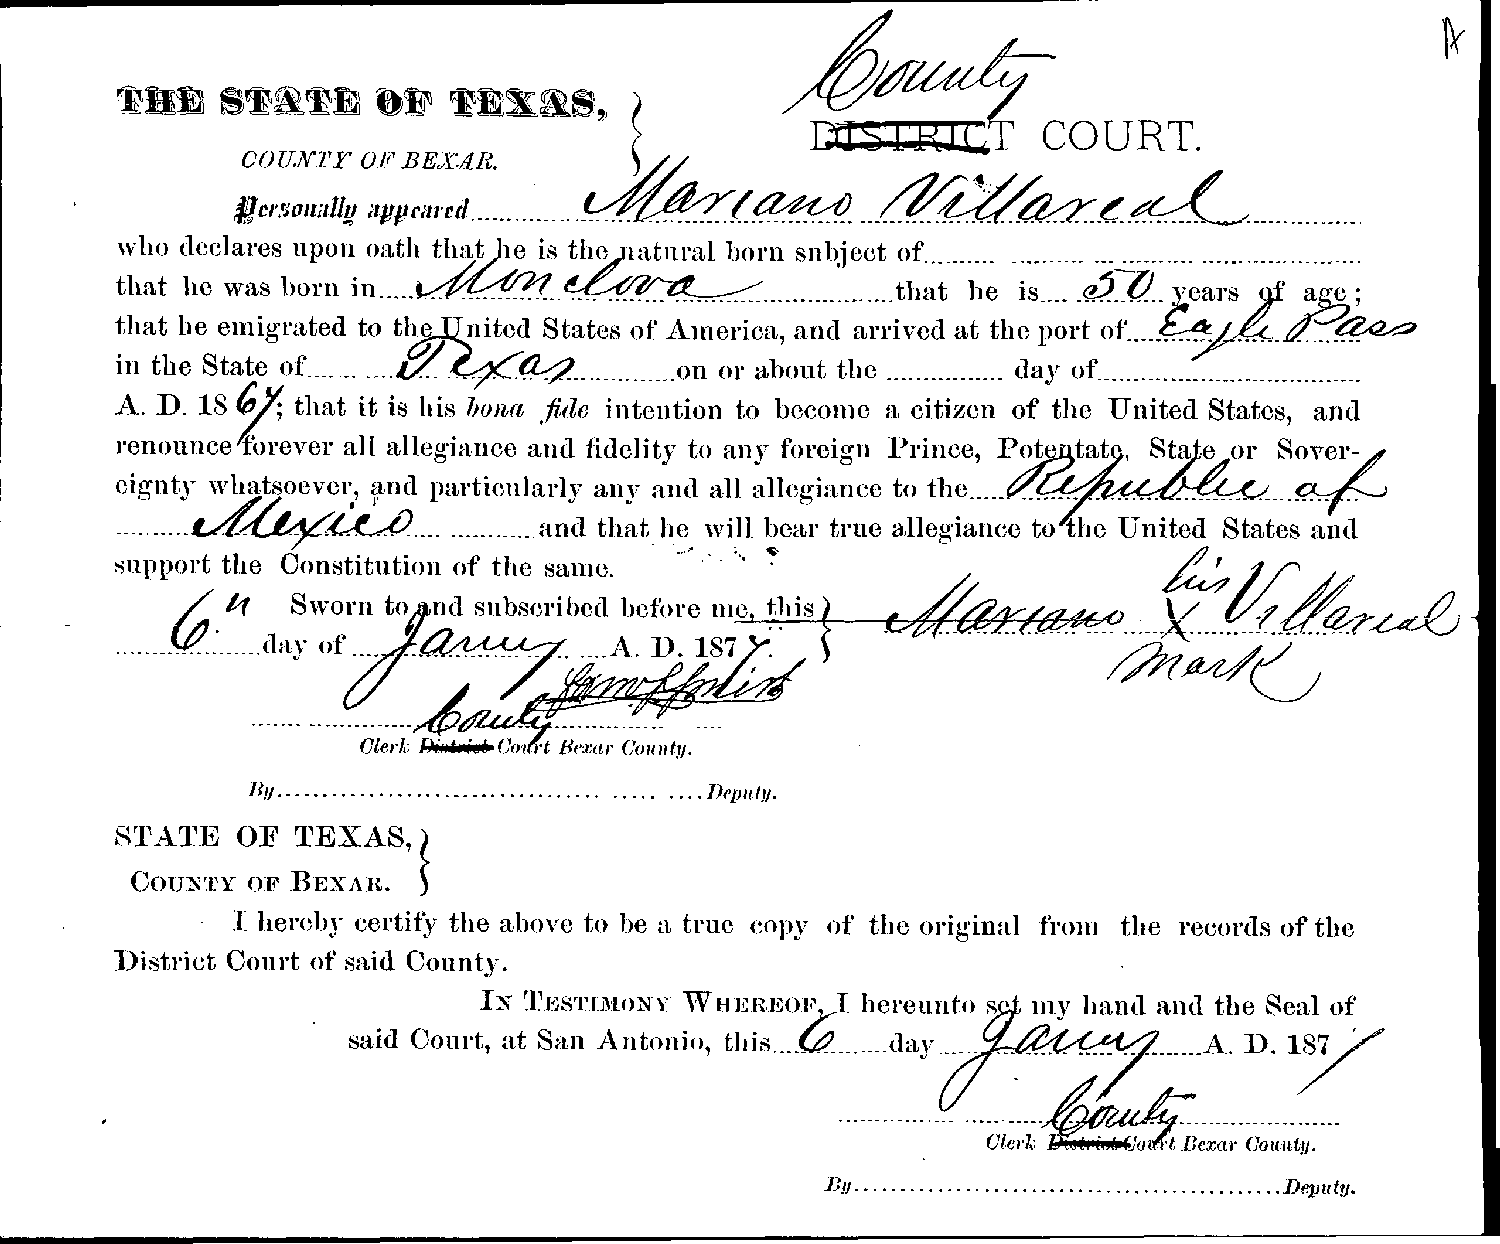 County
THE STATE OF TEXAS,
DISTRICT COURT.
COUNTY OF BEXAR.
Personally appeared Mariano Villareal
who declares upon oath that he is the natural born subject of
that he was born in Monclova that he is 50 years of age;
that he emigrated to the United States of America, and arrived at the port of Eagle Pass
in the State of Texas on or about the day of
A. D. 1867; that it is his bona fide intention to become a citizen of the United States, and
renounce forever all allegiance and fidelity to any foreign Prince, Potentate, State or Sover-
eignty whatsoever, and particularly any and all allegiance to the Republic of
Mexico and that he will bear true allegiance to the United States and
support the Constitution of the same.
Sworn to and subscribed before me, this
his
Mariano X Villareal
mark
6" day of Jany A. D. 187
County
Clerk District Court Bexar County.
By Deputy.
STATE OF TEXAS,
COUNTY OF BEXAR.
I hereby certify the above to be a true copy of the original from the records of the
District Court of said County.
IN TESTIMONY WHEREOF, I hereunto set my hand and the Seal of
said Court, at San Antonio, this 6 day Jany A. D. 187
County
Clerk District Court Bexar County.
By Deputy.